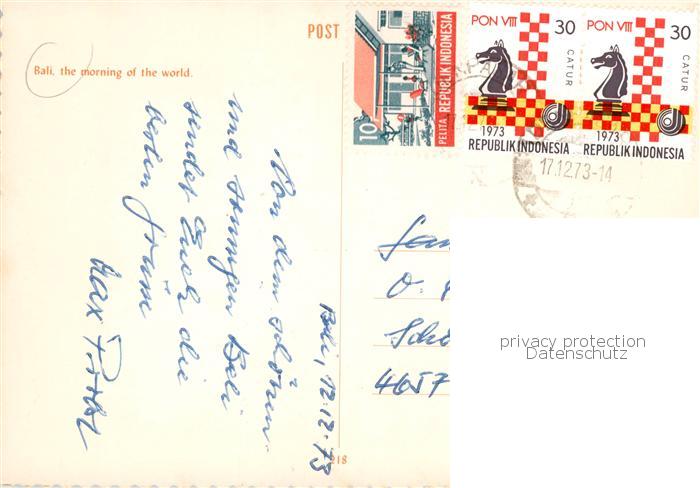 POST
Bali, the morning of the world.
PELITA REPUBLIK INDONESIA
10
PON VIII 30
CATUR
1973
REPUBLIK INDONESIA
PON VIII 30
CATUR
1973
REPUBLIK INDONESIA
17.12.73-14
Bali, 12.12.73
Von dem schönen
und sonnigen Bali
sendet Euch die
besten Grüsse
Max
4657
218
privacy protection
Datenschutz